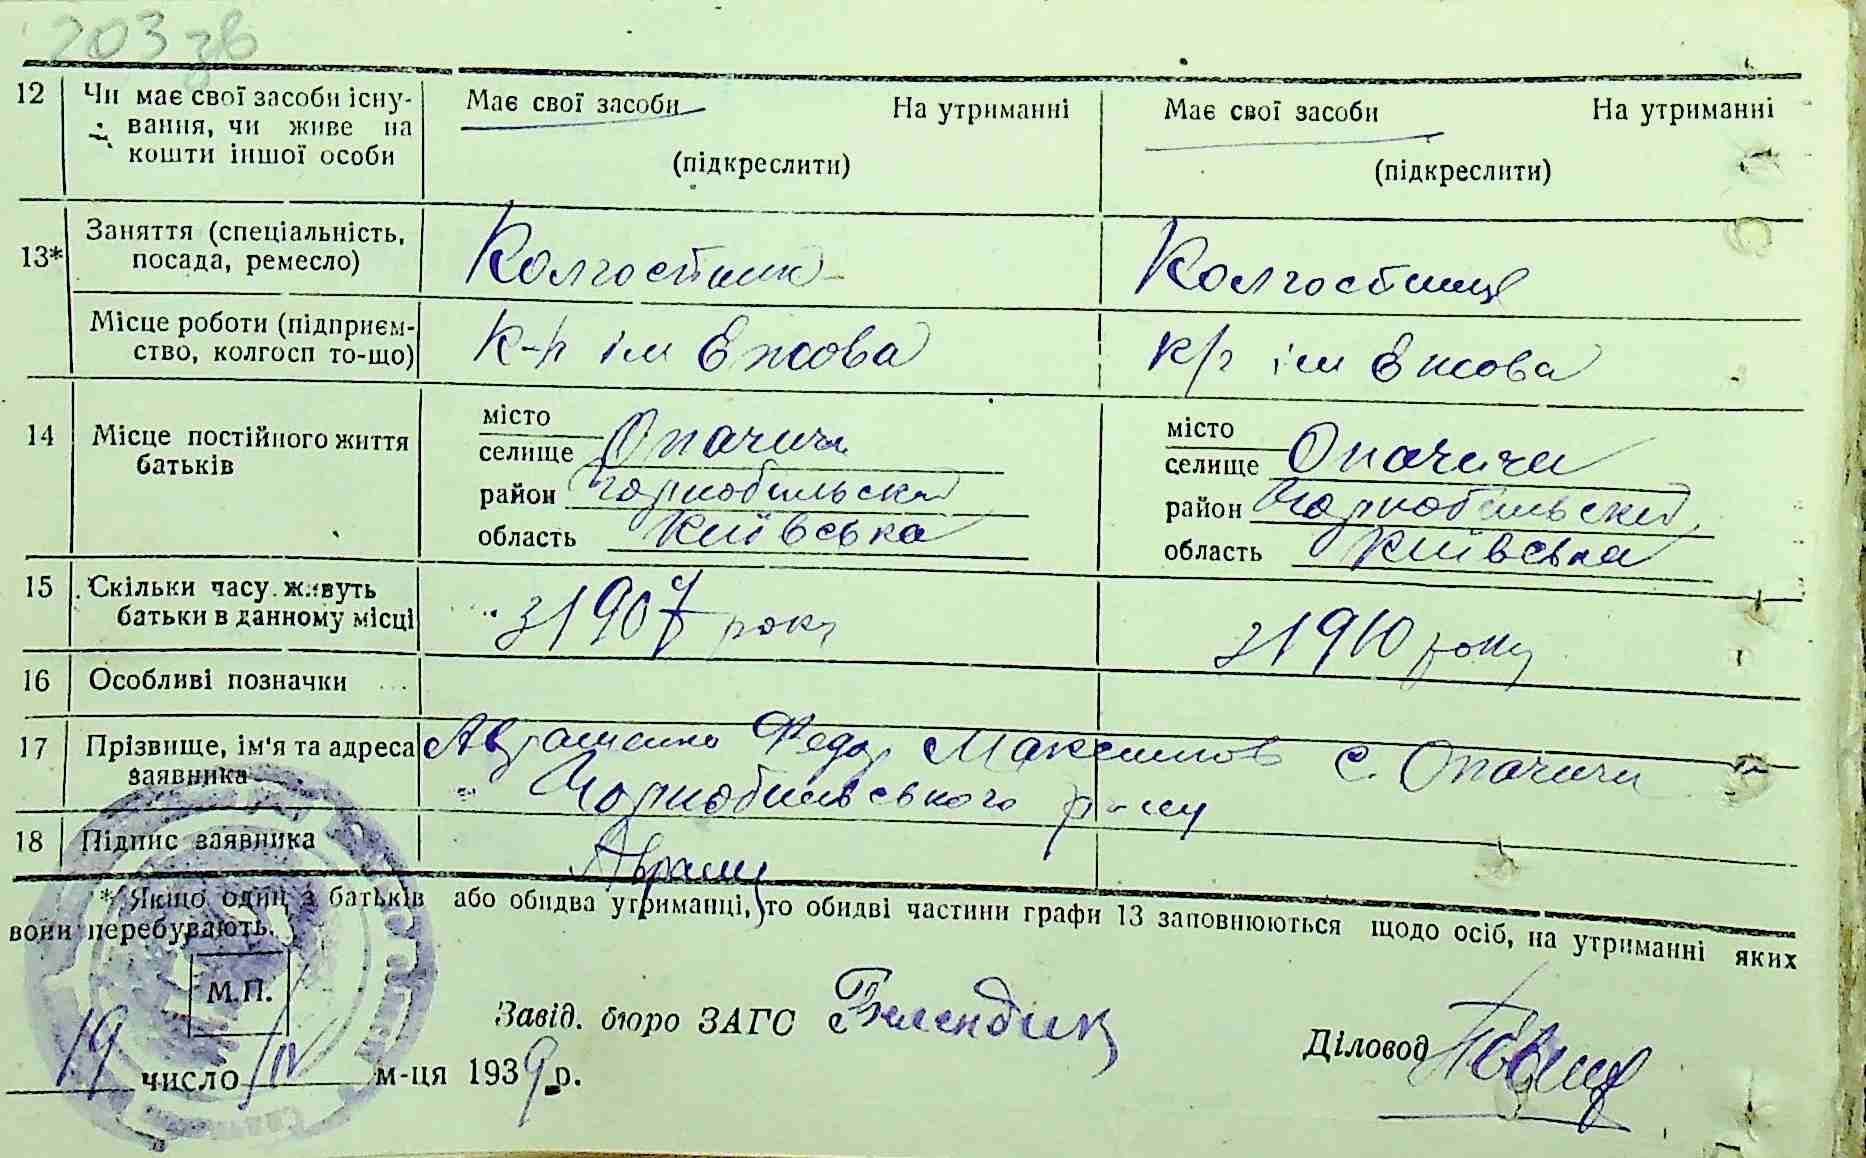 203 зв
12 Чи має свої засоби існу- Має свої засоби На утриманні Має свої засоби На утриманні
вання, чи живе на
кошти іншої особи (підкреслити) (підкреслити)
13* Заняття (спеціальність, Колгоспник Колгоспниця
посада, ремесло)
Місце роботи (підприєм- к-п ім Ежова к/г ім Ежова
ство, колгосп то-що)
14 Місце постійного життя місто Опачичі місто Опачичи
батьків селище селище
район Чорнобильський район Чорнобильський
область Київська область Київська
15 Скільки часу живуть з 1907 року з 1910 року
батьки в данному місці
16 Особливі позначки
17 Прізвище, ім'я та адреса Авраменко Федор Максимов с. Опачичи
заявника Чорнобильвського р-ну
18 Підпис заявника Аврам
* Якщо один з батьків або обидва утриманці, то обидві частини графи 13 заповнюються щодо осіб, на утриманні яких
вони перебувають.
М.П.
Завід. бюро ЗАГС Діловод
19 число IV м-ця 1939 р.